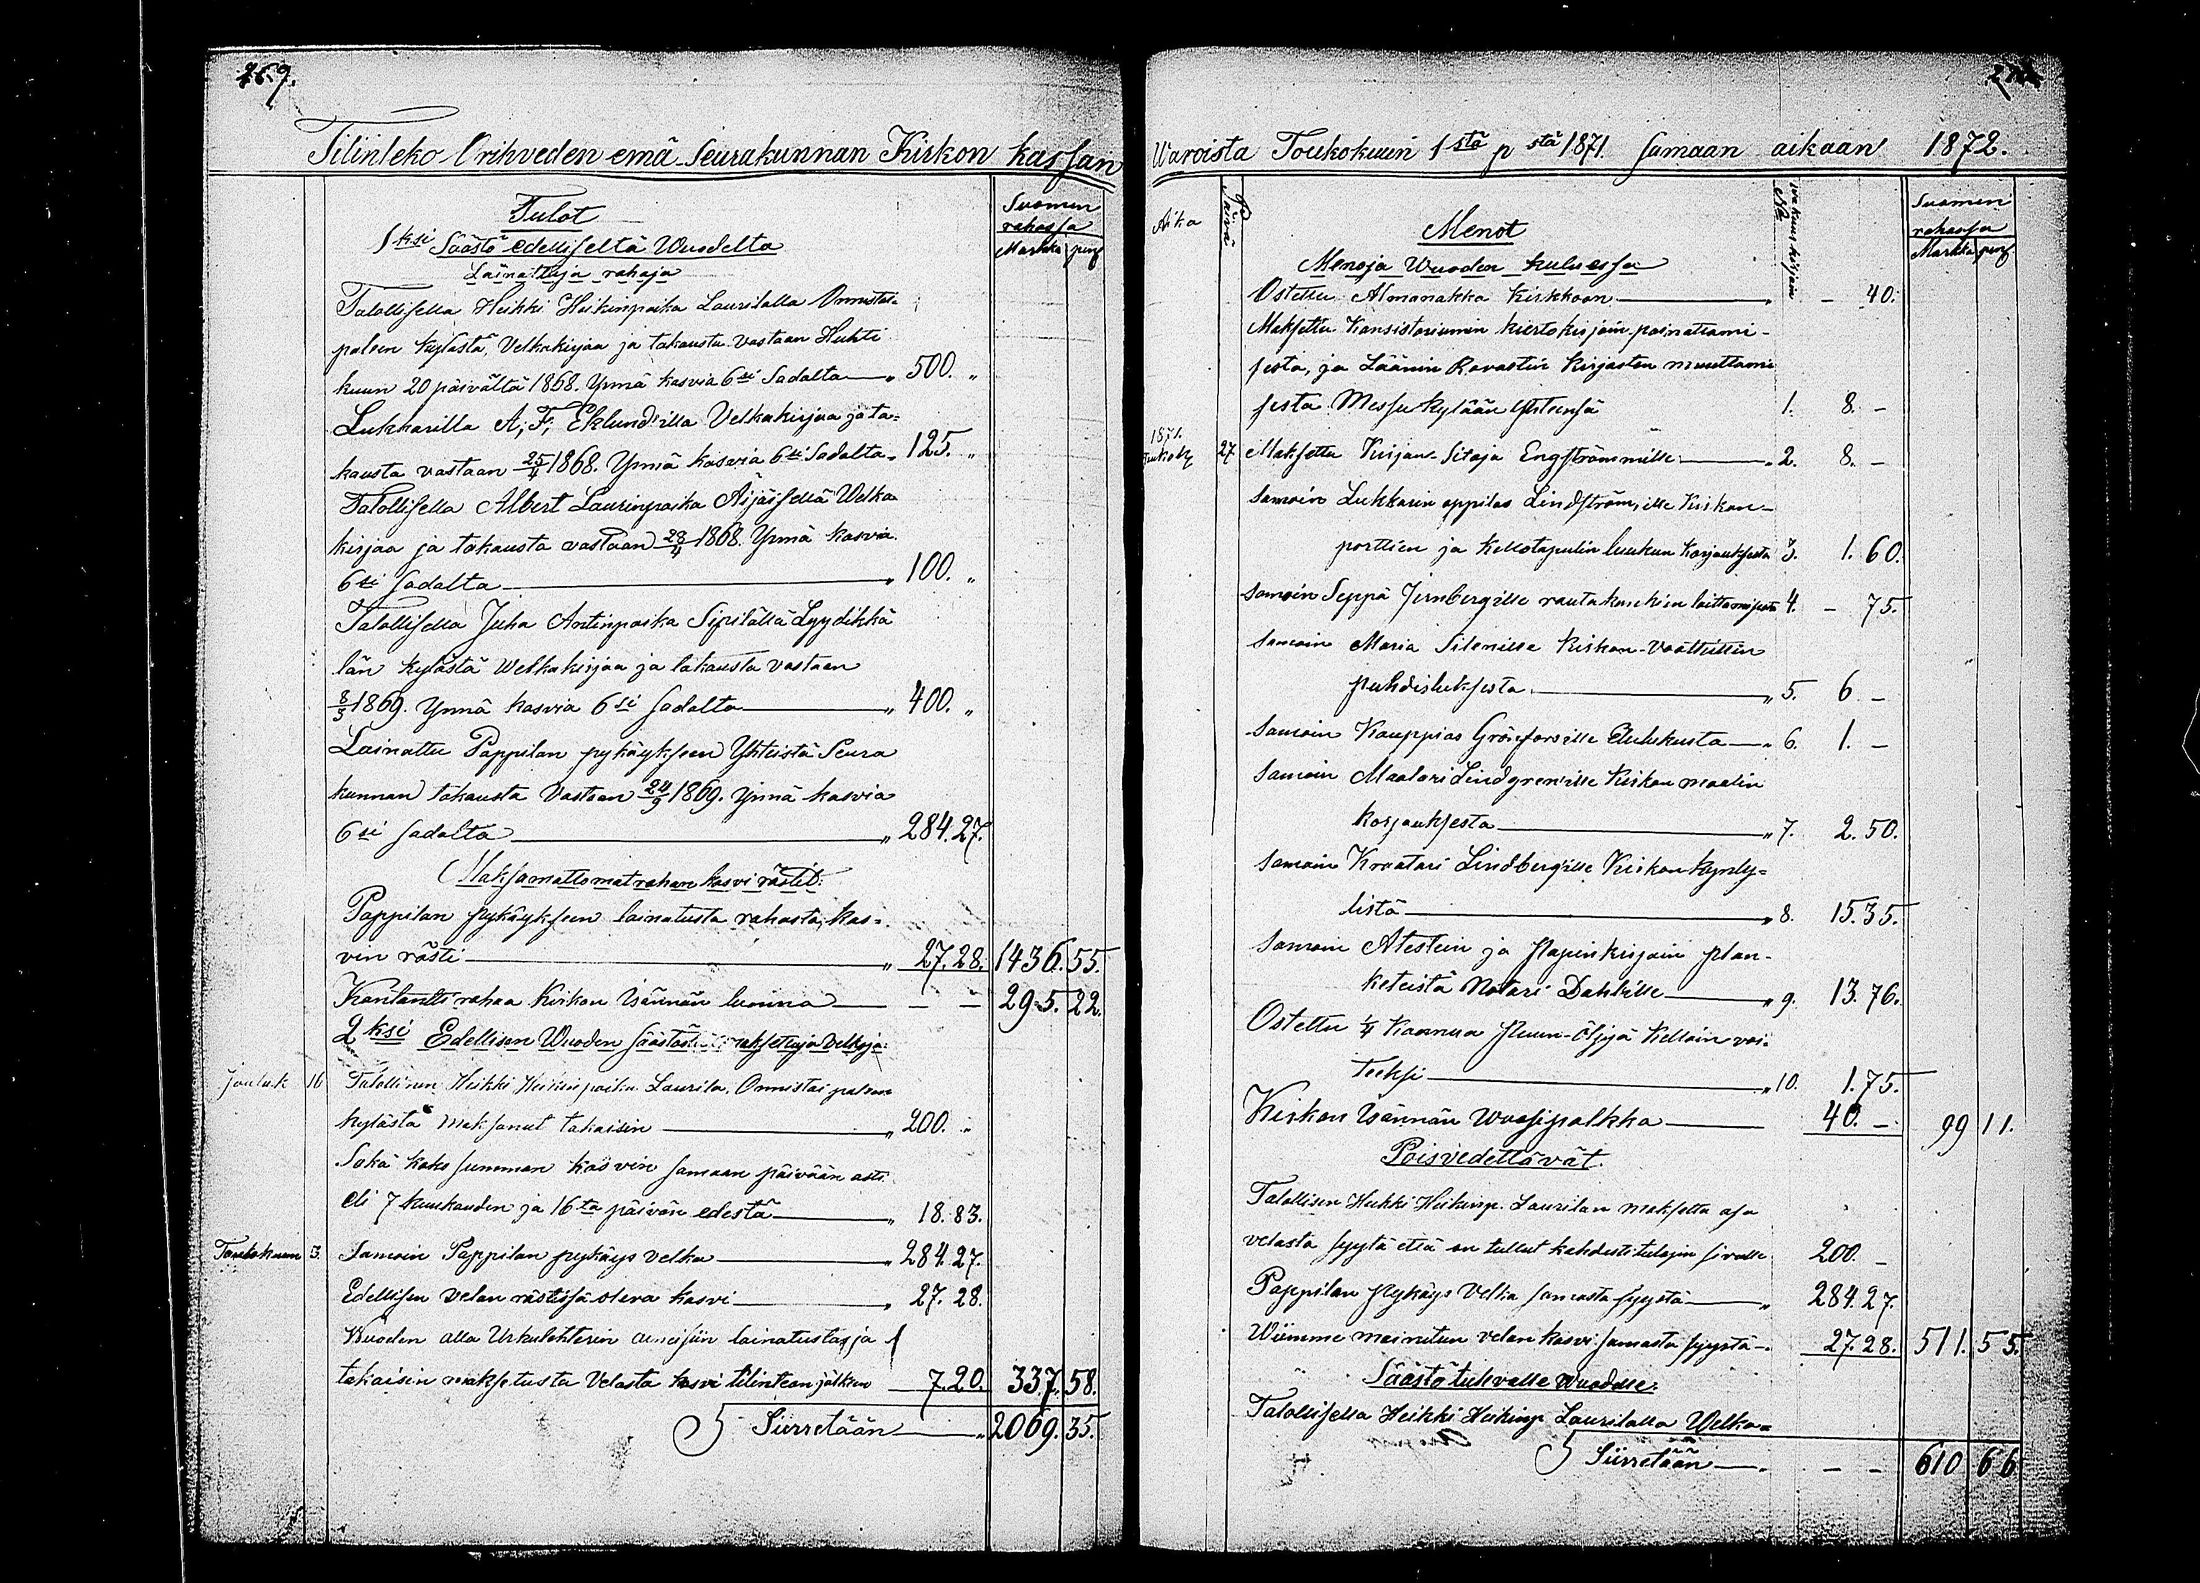 269.
Tilinteko Oriheveden emä Seurakunnan Kirkon kassan
Suomen
rahassa
Markka pen
Tulot
1ksi Säästö edelliseltä Wuodelta
Lainattuja rahoja
Talollisella Heikki Heikinpoika Laurilalla Onnistai-
palsen kylästä, Velkakirjaa ja takausta vastaan Huhti
kuun 20 päivältä 1868. Ynnä kasvia 6si Sadalta — „ 500. „
Lukkarilla A. F. Eklund'illa Velkakirjaa ja ta-
kausta vastaan 25/4 1868. Ynnä kasvia 6si Sadalta „ 125. „
Talollisella Albert Laurinpoika Äijäisellä Welka
kirjaa ja takausta vastaan 28/4 1868. Ynnä kasvia
6si sadalta — „ 100. „
Talollisella Juha Antinpoika Sipilällä Lyydikkä
län kylästä Welkakirjaa ja takausta vastaan
8/5 1869. Ynnä kasvia 6si sadalta — „ 400. „
Lainattu Pappilan pykäykseen Yhteistä Seura
kunnan takausta vastaan 24/9 1869. Ynnä kasvia
6si sadalta — „ 284. 27.
Maksamattomat rahan kasvi rästit:
Pappilan pykäykseen lainatusta rahasta, kas-
vin rästi — „ 27. 28. 1436. 55.
Kontanti rahaa Kirkon Isännän luonna — – – 295. 22.
2ksi Edellisen Wuoden säästöstä maksettuja Velkoja:
Jouluk 16 Talollinen Heikki Heikinpoika Laurila, Onnistaipalsen
kylästä maksanut takaisin — „ 200. „
Sekä koko summan kasvin samaan päivään asti
eli 7 kuukauden ja 16ta päivän edestä — „ 18. 83.
Toukokuun 3. Samoin Pappilan pykäys velka — „ 284. 27.
Edellisen velan rästissä oleva kasvi — „ 27. 28.
Wuoden alla Urkulehterin lainatusta ja
takaisin maksetusta Velasta kasvi tilinteon jälkeen 7. 20. 337. 58.
Siirretään — „ 2069. 35.
Waroista Toukokuun 1stä p stä 1871 samaan aikaan 1872.
Aika
Päivä
Menot
Wakuus kirjain
No
Suomen
rahassa
Markka pen
Menoja Wuoden kuluessa
Ostettu Almanakka Kirkkoon — „ – 40.
Maksettu Konsistoriumin kiertokirjain painattami-
sesta, ja Läänin Rovastin Kirjasten muuttami
sesta Messukylään Yhteensä 1. 8. –
1871.
27 Maksettu Kirjan-Sitoja Engströmmille — „ 2. 8. –
Samoin Lukkarin oppilas Lindström'ille Kirkon-
porttien ja Kellotapulin luukun Korjauksesta 3. 1. 60.
Samoin Seppä Jernberg'ille rauta laittamisesta 4. – 75.
Samoin Maria Sileniille Kirkon-Vaatteitten
puhdistuksesta — „ 5. 6 –
Samoin Kauppias Grönfors'ille — „ 6. 1. –
Samoin Maalari Lindgren'ille Kirkon maalin
korjauksesta — „ 7. 2. 50.
Samoin Kraatari Lindberg'ille Kirkon Kyntty-
listä — „ 8. 15. 35.
Samoin Atestein ja Papinkirjain plan-
keteistä Notari Dahl'ille — „ 9. 13. 76.
Ostettu 1/4 Kannua Puun-öljyä Kelloin voi-
teeksi — „ 10. 1. 75.
Kirkon Isännän Wuosipalkka — 40. – 99 11.
Poisvedettävät.
Talollisen Heikki Heikinp. Laurilan maksettu osa
velasta syystä että on tullut kahdesti tulojen sivulle 200. –
Pappilan Pykäys Velka samasta syystä — „ 284. 27.
Wiimme mainitun velan kasvi samasta syystä – „ 27. 28. 511. 55.
Säästö tulevalle Wuodelle.
Talollisella Heikki Heikinp. Laurilalla Welka=
Siirretään — „ – – 610 66